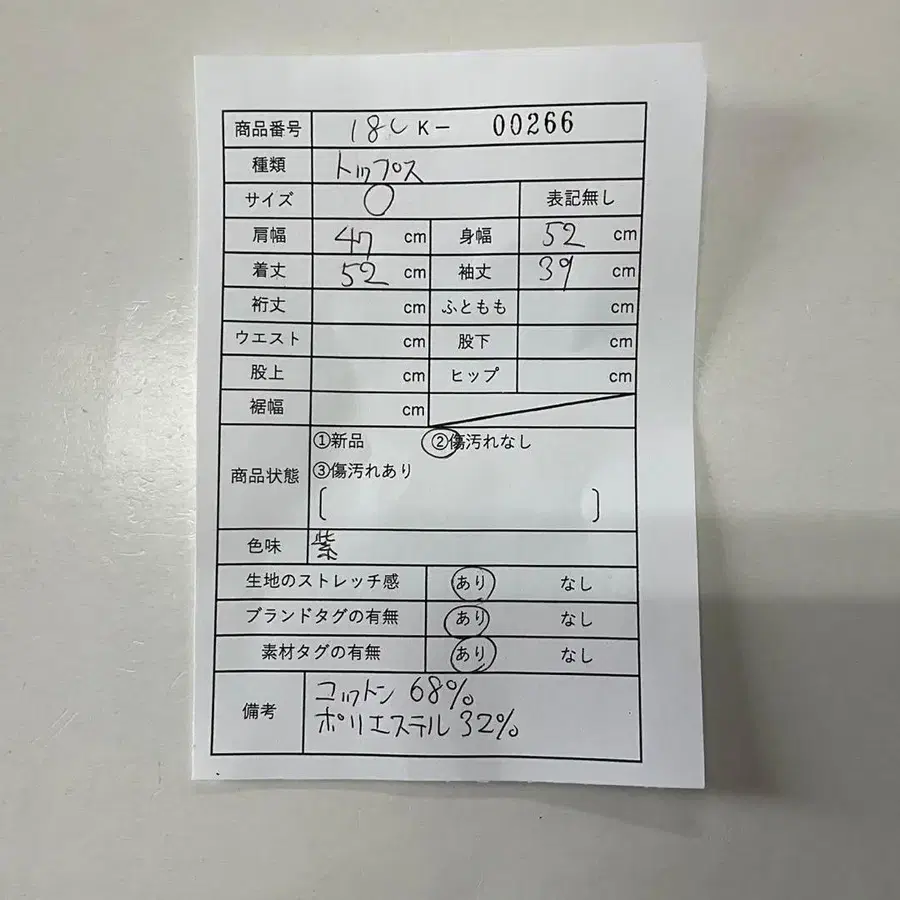 商品番号 18C K- 00266
種類 トップス
サイズ 0 表記無し
肩幅 47 cm 身幅 52 cm
着丈 52 cm 袖丈 39 cm
裄丈 cm ふともも cm
ウエスト cm 股下 cm
股上 cm ヒップ cm
裾幅 cm
①新品 ②傷汚れなし
商品状態 ③傷汚れあり
[ ]
色味 紫
生地のストレッチ感 あり なし
ブランドタグの有無 あり なし
素材タグの有無 あり なし
備考 コットン 68%
ポリエステル 32%